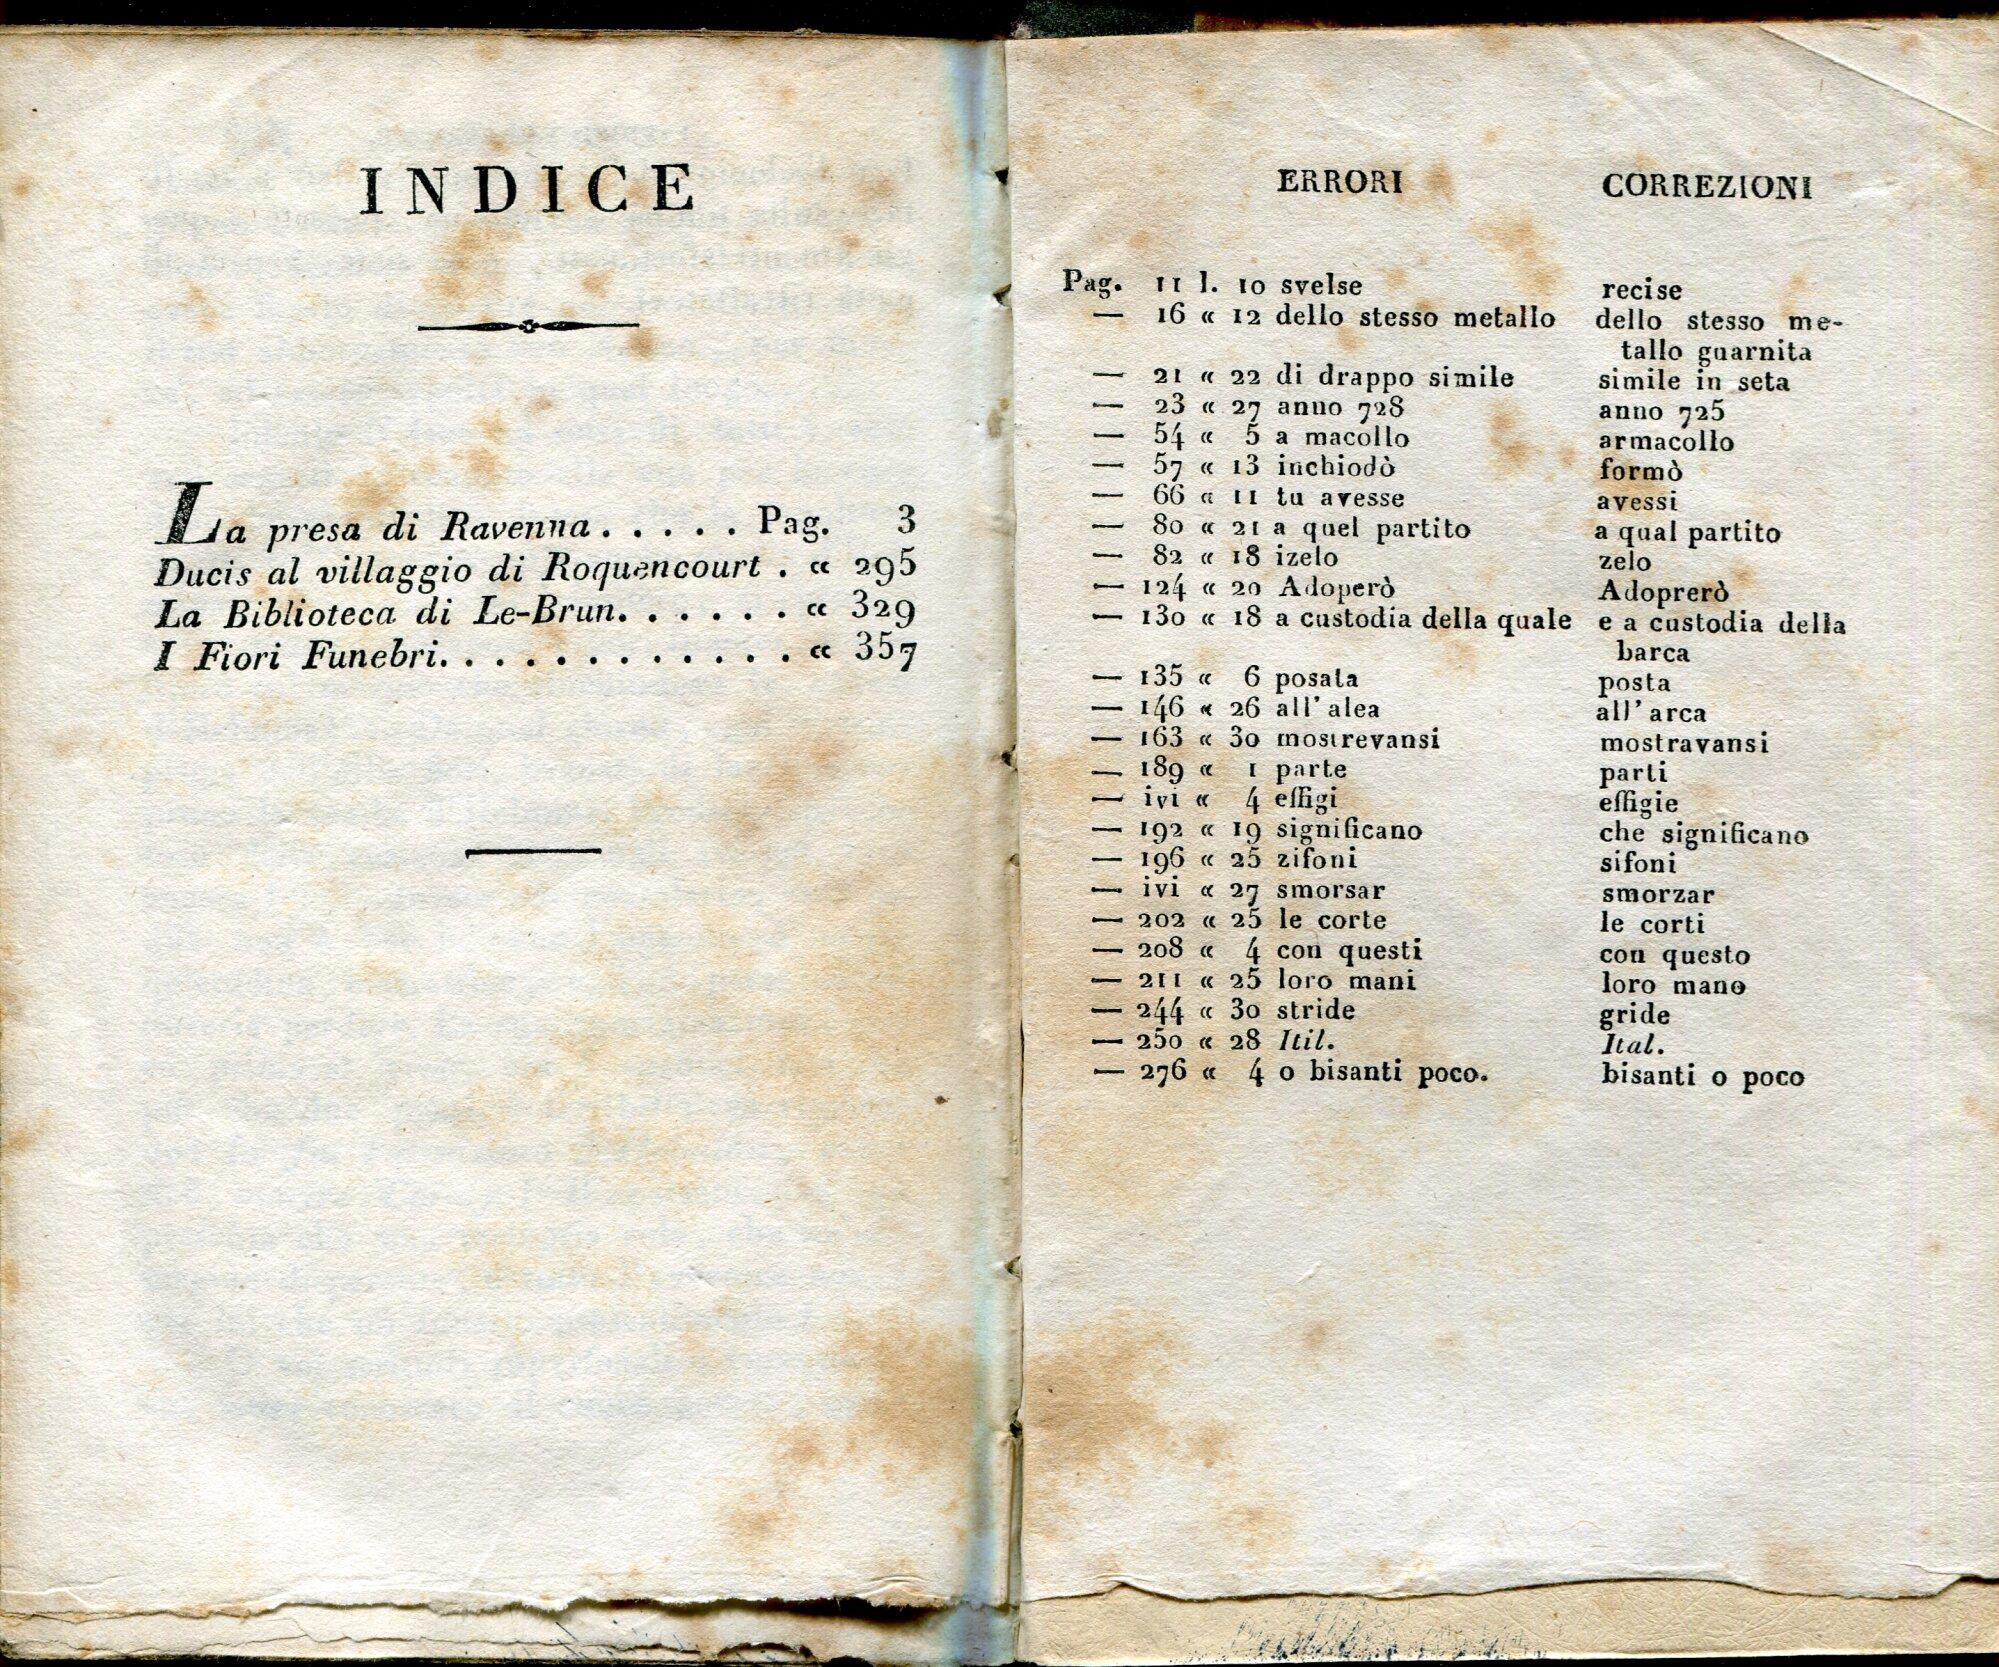 INDICE
La presa di Ravenna..... Pag. 3
Ducis al villaggio di Roquencourt . « 295
La Biblioteca di Le-Brun...... « 329
I Fiori Funebri............. « 357
ERRORI CORREZIONI
Pag. 11 l. 10 svelse recise
— 16 « 12 dello stesso metallo dello stesso me-
tallo guarnita
— 21 « 22 di drappo simile simile in seta
— 23 « 27 anno 728 anno 725
— 54 « 5 a macollo armacollo
— 57 « 13 inchiodò formò
— 66 « 11 tu avesse avessi
— 80 « 21 a quel partito a qual partito
— 82 « 18 izelo zelo
— 124 « 20 Adoperò Adoprerò
— 130 « 18 a custodia della quale e a custodia della
barca
— 135 « 6 posata posta
— 146 « 26 all' alea all' arca
— 163 « 30 mostrevansi mostravansi
— 189 « 1 parte parti
— ivi « 4 effigi effigie
— 192 « 19 significano che significano
— 196 « 25 zifoni sifoni
— ivi « 27 smorsar smorzar
— 202 « 25 le corte le corti
— 208 « 4 con questi con questo
— 211 « 25 loro mani loro mano
— 244 « 30 stride gride
— 250 « 28 Itil. Ital.
— 276 « 4 o bisanti poco. bisanti o poco